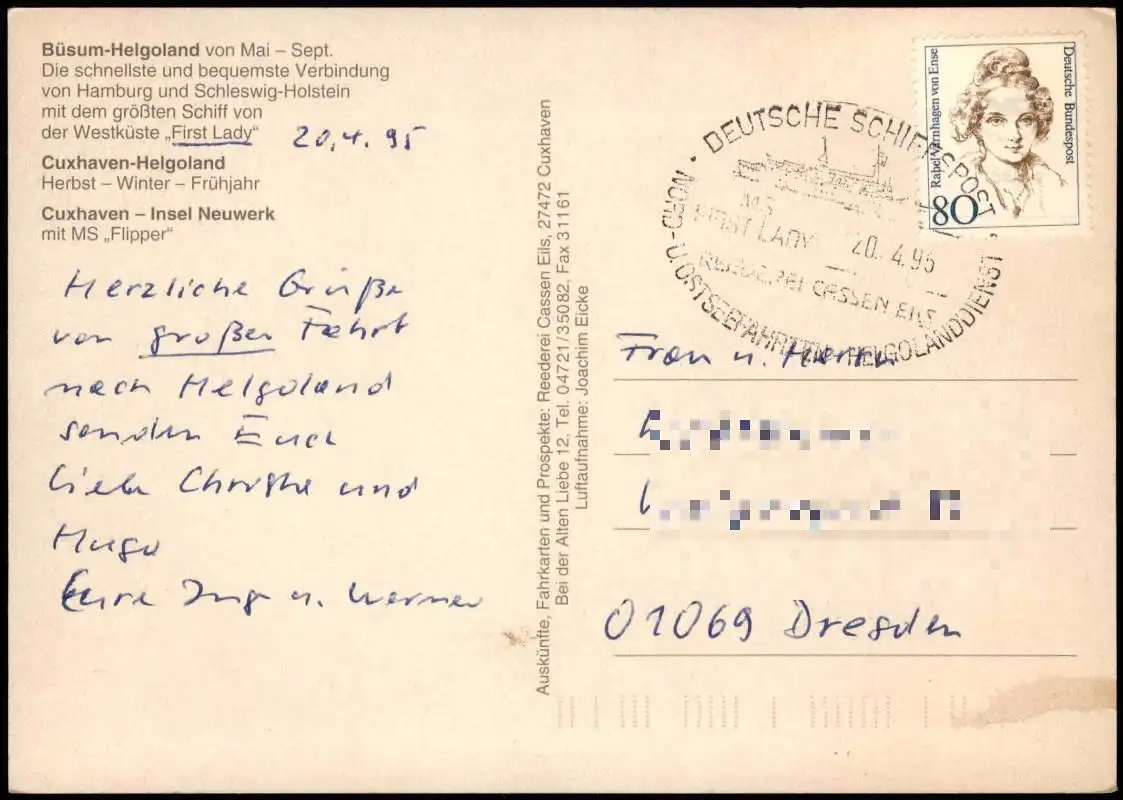 Büsum-Helgoland von Mai – Sept.
Die schnellste und bequemste Verbindung
von Hamburg und Schleswig-Holstein
mit dem größten Schiff von
der Westküste „First Lady“
20.4.95
Cuxhaven-Helgoland
Herbst – Winter – Frühjahr
Cuxhaven – Insel Neuwerk
mit MS „Flipper“
Herzliche Grüße
von großer Fahrt
nach Helgoland
senden Euch
liebe Christa und
Hugo
Eure Inge u. Werner
Auskünfte, Fahrkarten und Prospekte: Reederei Cassen Eils, 27472 Cuxhaven
Bei der Alten Liebe 12, Tel. 04721/35082, Fax 31161
Luftaufnahme: Joachim Eicke
Deutsche Bundespost
Rahel Varnhagen von Ense
80
DEUTSCHE SCHIFFSPOST
MS
FIRST LADY
20.4.95
REEDEREI CASSEN EILS
NORD- U. OSTSEEFAHRTEN HELGOLANDDIENST
Frau u. Herrn
01069 Dresden